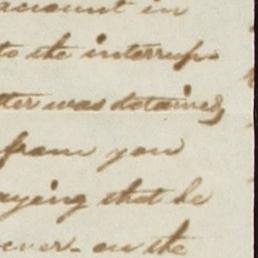 account in
to the interrup-
tter was detained
from you
aying that he
ever - on the